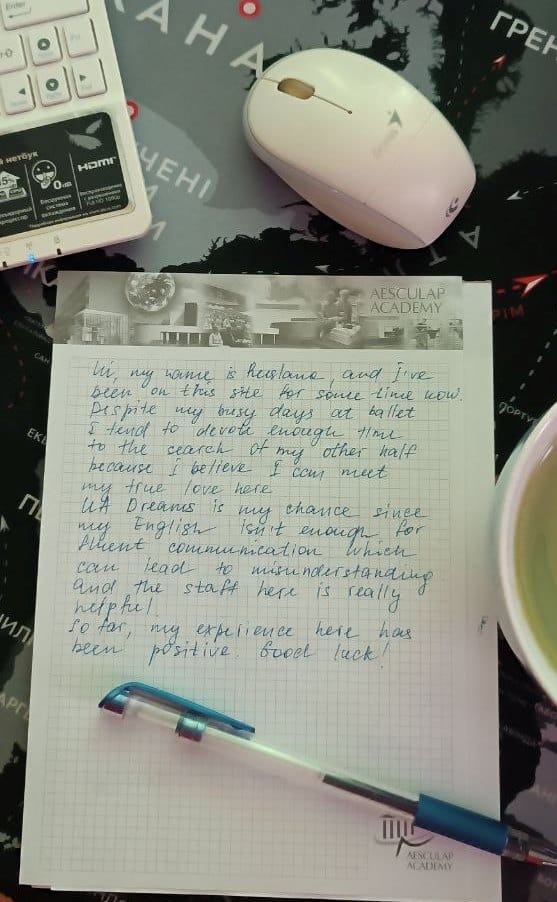 Enter
КАНА
ГРЕН
ЧЕНІ
й нетбук
0 dB
Бесшумная
система
охлаждения
HDMI
AESCULAP
ACADEMY
Hi, my name is Ruslana, and I've
been on this site for some time now.
Despite my busy days at ballet
I tend to devote enough time
to the search of my other half
because i believe I can meet
my true love here
UA Dreams is my chance since
my English isn't enough for
fluent communication which
can lead to misunderstanding
and the staff here is really
helpful.
So far, my experience here has
been positive. Good luck!
AESCULAP
ACADEMY